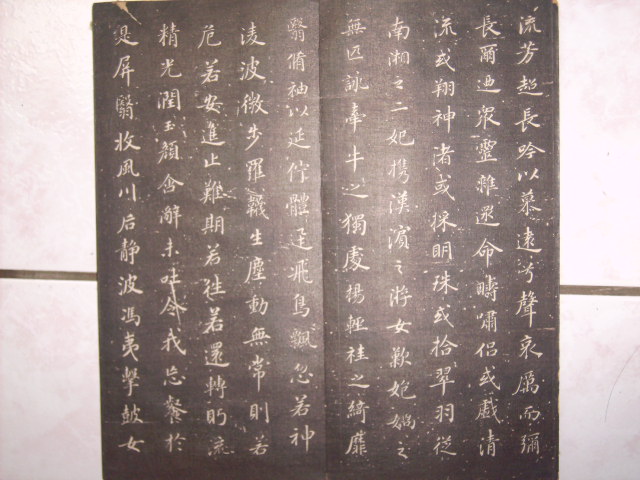 流芳超長吟以慕遠兮聲哀厲而彌
長爾迺眾靈雜遝命疇嘯侶或戲清
流或翔神渚或採明珠或拾翠羽從
南湘之二妃攜漢濱之游女歎媧之
無匹詠牽牛之獨處揚輕袿之綺靡
翳脩袖以延佇體迅飛鳧飄忽若神
淩波微步羅襪生塵動無常則若
危若安進止難期若往若還轉眄流
精光潤玉顏含辭未吐令我忘餐於
是屏翳收風川后静波馮夷擊鼓女